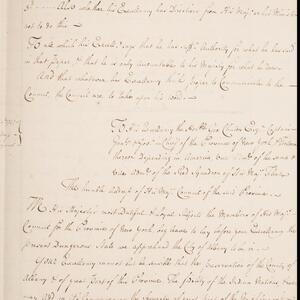 Also whether his Excellency has Directions from His Maj:
not to do the
To all which his Excell: says that he has suff: Authority for what he has said
in that paper, & that he is only accountable to his Majesty for what he does
And that whatever his Excellency thinks proper to Communicate to the
Council, the Council are to take upon his word
To His Excellency the Hon: Geo: Clinton Esq: Captain
Gen: & Gov: in Chief of the Province of New York &
thereon Depending in America, Vice Adm: of the same &
Vice Adm: of the Red Squadron of His Maj: Fleet
The humble address of His Maj: Council of the said Province
His Majesty's most Dutiful & Loyal Subjects the Members of His Maj:
Council for the Province of New York beg leave to lay before your Excellency the
present Dangerous State we apprehend the City of Albany is in
Your Excellency cannot but be sensible that the preservation of the County of
Albany & of great part of this Province, the fidelity of the Indian Nations